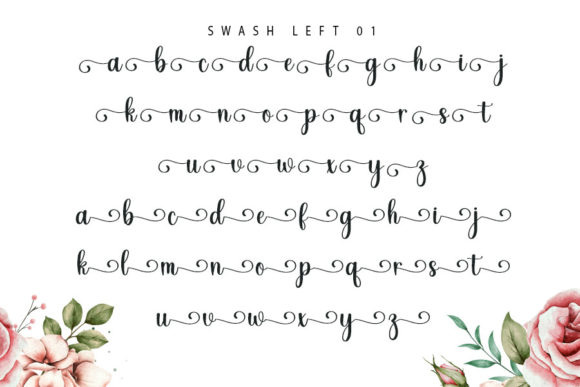 SWASH LEFT 01
a b c d e f g h i j
k m n o p q r s t
u v w x y z
a b c d e f g h i j
k l m n o p q r s t
u v w x y z